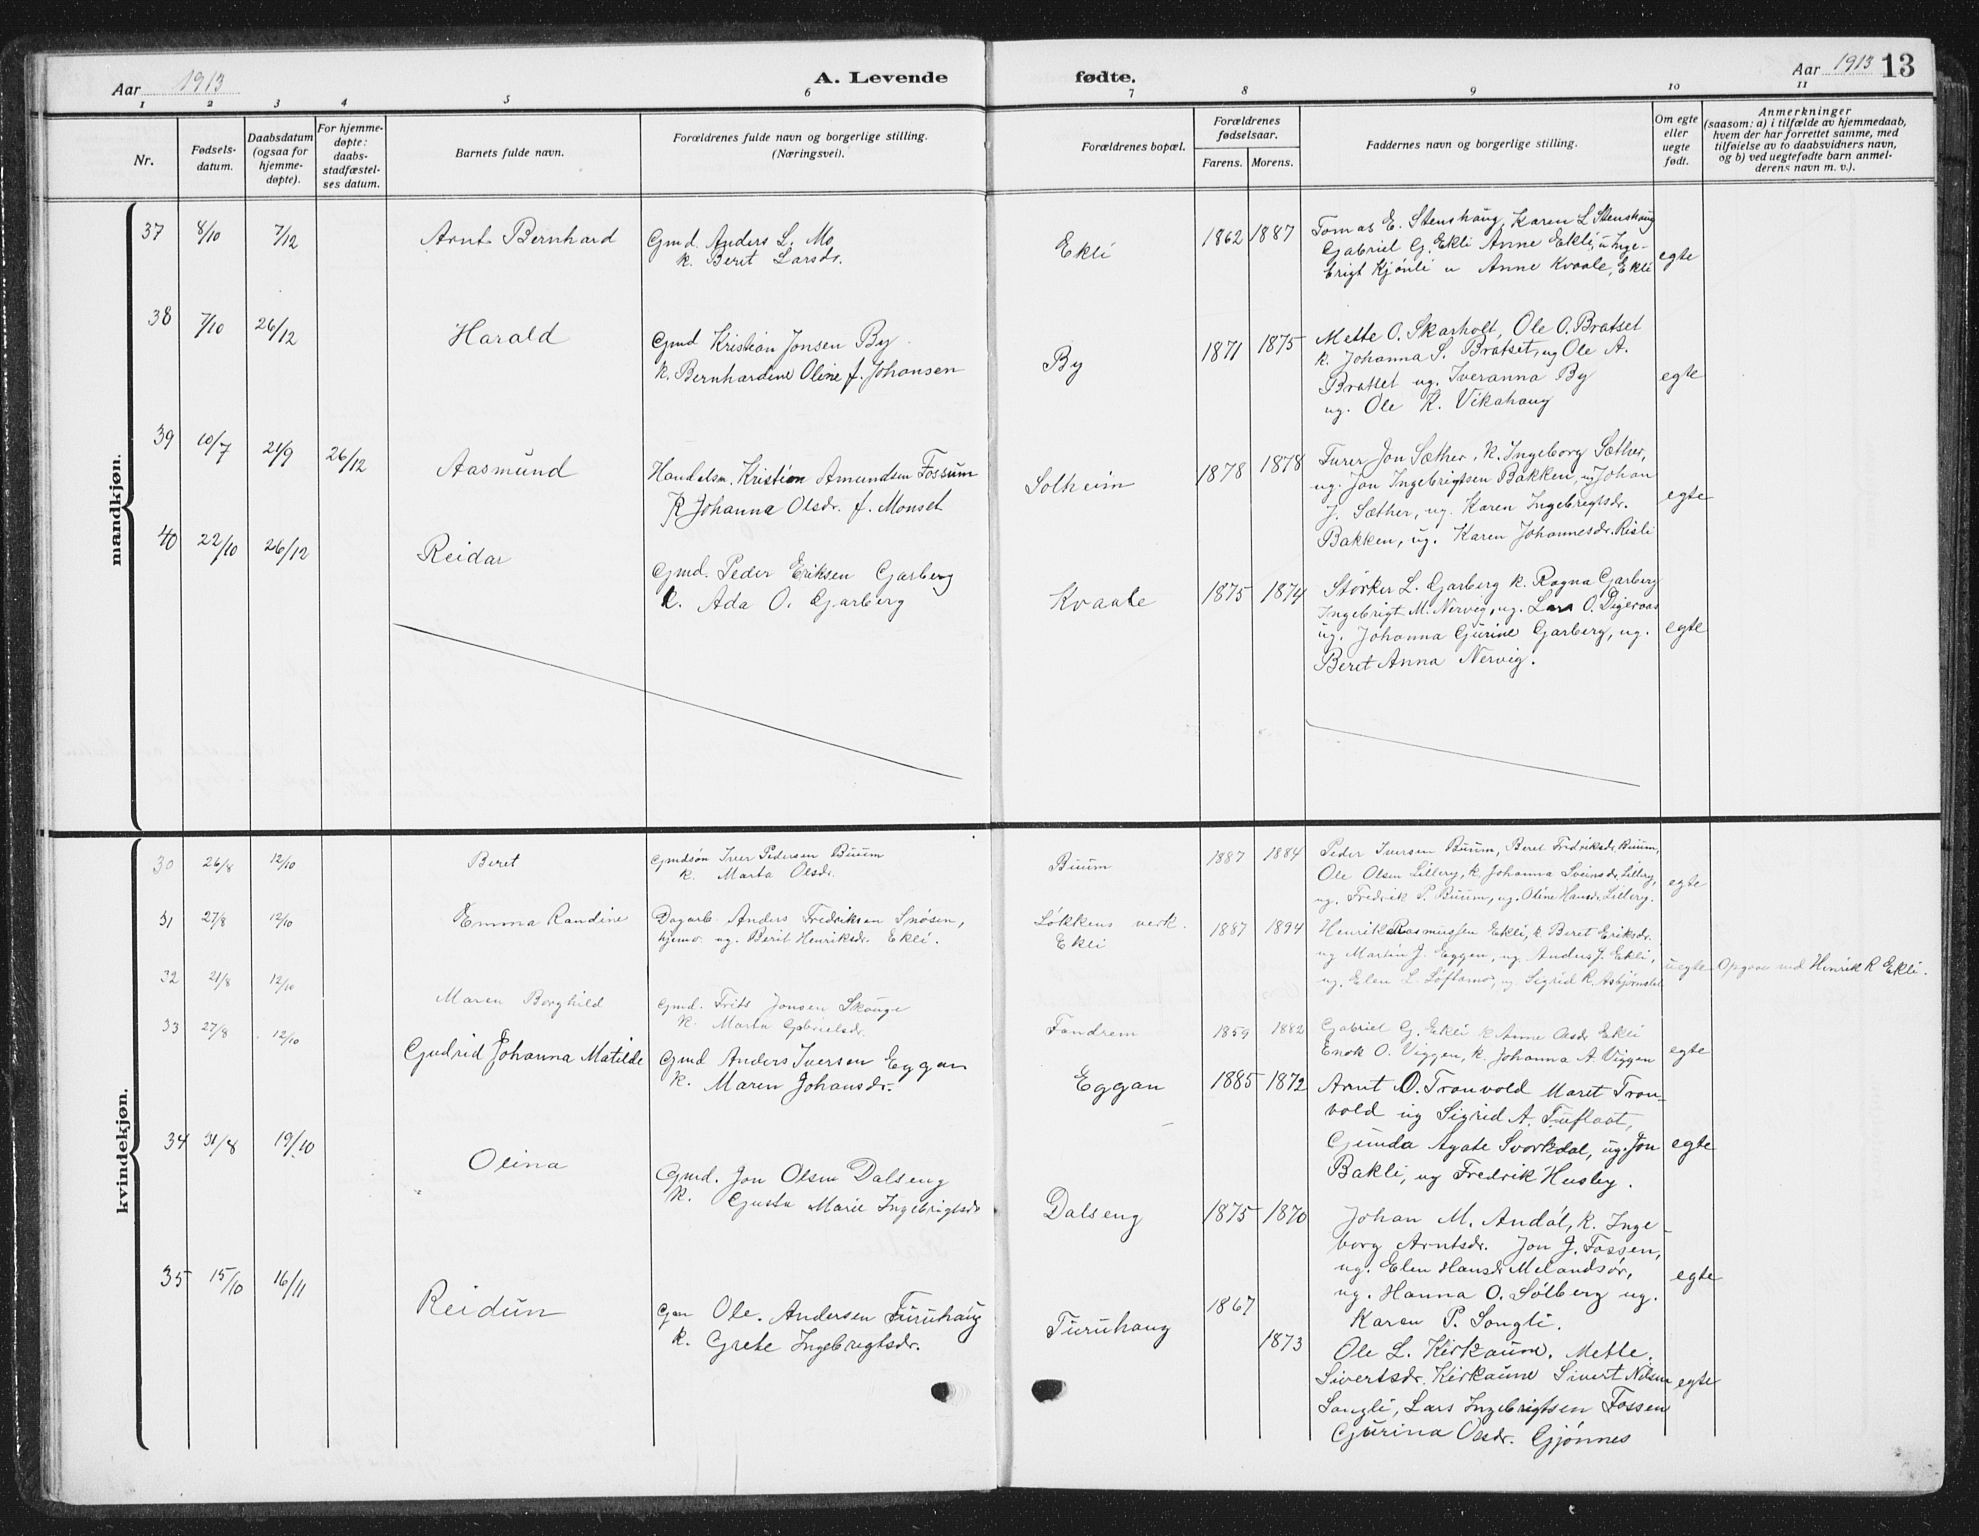 Aar 1913
A. Levende fødte.
Aar 1913 13
1 2 3 4 5 6 7 8 9 10 11
Nr.
Fødsels-
datum.
Daabsdatum
(ogsaa for
hjemme-
døpte).
For hjemme-
døpte:
daabs-
stadfæstel-
ses datum.
Barnets fulde navn.
Forældrenes fulde navn og borgerlige stilling.
(Næringsvei).
Forældrenes bopæl.
Forældrenes
fødselsaar.
Farens. Morens.
Faddernes navn og borgerlige stilling.
Om egte
eller
uegte
født.
Anmerkninger
(saasom: a) i tilfælde av hjemmedaab,
hvem der har forrettet samme, med
tilføielse av to daabsvidners navn,
og b) ved uegtefødte barn anmel-
derens navn m. v.).
mandkjøn.
37 8/10 7/12 Arnt Bernhard
Gmd. Anders L. Mo
k. Beret Larsdr.
Ekli 1862 1887
Tomas E. Stenshaug, Karen L Stenshaug
Gabriel G. Ekli Anne Ekli, u Inge-
brigt Kjønli u Anne Kvaale, Ekli
egte
38 7/10 26/12 Harald
Gmd Kristian Jonsen By
k. Bernhardine Oline f. Johansen
By 1871 1875
Mette O. Skarholt, Ole O. Bratset
k. Johanna S. Bratset, ug Ole A.
Brattet ug. Iveranna By
ug. Ole K. Vikahaug
egte
39 10/7 21/9 26/12 Aasmund
Handelsm. Kristian Amundsen Fossum
K Johanna Olsdr. f. Monset
Solheim 1878 1878
Furer Jon Sæther, k. Ingeborg Sæther,
ug. Jon Ingebrigtsen Bakken, ug Johan
J. Sæther, ug. Karen Ingebregtsdr.
Bakken, ug. Karen Johannesdr. Risli
egte
40 22/10 26/12 Reidar
Gmd. Peder Eriksen Garberg
k. Ada O. Garberg
Kvaale 1875 1874
Størker L. Garberg k. Ragna Garberg
Ingebrigt M. Nervig, ug. Lars O. Digeraas
ug. Johanna Gurine Garberg, ug.
Beret Anna Nervig.
egte
kvindekjøn.
30 26/8 12/10 Beret
Gmdsøn Iver Pedersen Buum
k. Marta Olsdr.
Buum 1887 1884
Peder Iversen Buum, Beret Fredriksdr Buum,
Ole Olsen Lillery, k. Johanna Sveinsdr. Lillery,
ug. Fredrik P. Buum, ug. Oline Hansdr. Lillery.
egte
31 27/8 12/10 Emma Randine
Dagarb. Anders Fredriksen Snøsen,
hjemv. ug. Berit Henriksdr. Ekli.
Løkkens verk.
Ekli
1887 1894
Henrik Rasmussen Ekli, k. Beret Eriksdr.
ug Martin J. Eggen, ug. Anders J. Ekli,
ug. Elen L. Løftamo, ug. Sigrid R. Asbjørnslet
uegte Opgave ved Henrik R Ekli.
32 21/8 12/10 Maren Borghild
Gmd. Frits Jonsen Skauge
k. Marta Gabrielsdr.
Fandrem 1859 1882
Gabriel G. Ekli k Anne Oldr Ekli
Enok O. Viggen, k. Johanna A. Viggen
egte
33 27/8 12/10 Gudrid Johanna Matilde
Gmd Anders Iversen Eggan
k. Maren Johansdr.
Eggan 1885 1872
Arnt O. Tronvold Maret Tron-
vold ug Sigrid A. Tuflaat,
Gunda Agate Svorkdal, ug Jon
Bakli, ug Fredrik Husby.
egte
34 31/8 19/10 Olina
Gmd. Jon Olsen Dalseng
k. Gusta Marie Ingebrigtsdr
Dalseng 1875 1870
Johan M. Andøl, k. Inge-
borg Arntsdr. Jon J. Fossen,
ug. Elen Hansdr Melandsør,
ug. Hanna O. Sølberg ug.
Karen P. Songli.
egte
35 15/10 16/11 Reidun
Gm Ole Andersen Furuhaug
k. Grete Ingebrigtsdr.
Furuhaug 1867 1873
Ole L. Kirkaune, Mette
Sivertsdr. Kirkaune Sivert Nilsen
Songli, Lars Ingebrigtsen Fossen
Gurina Olsdr. Gjønnes
egte